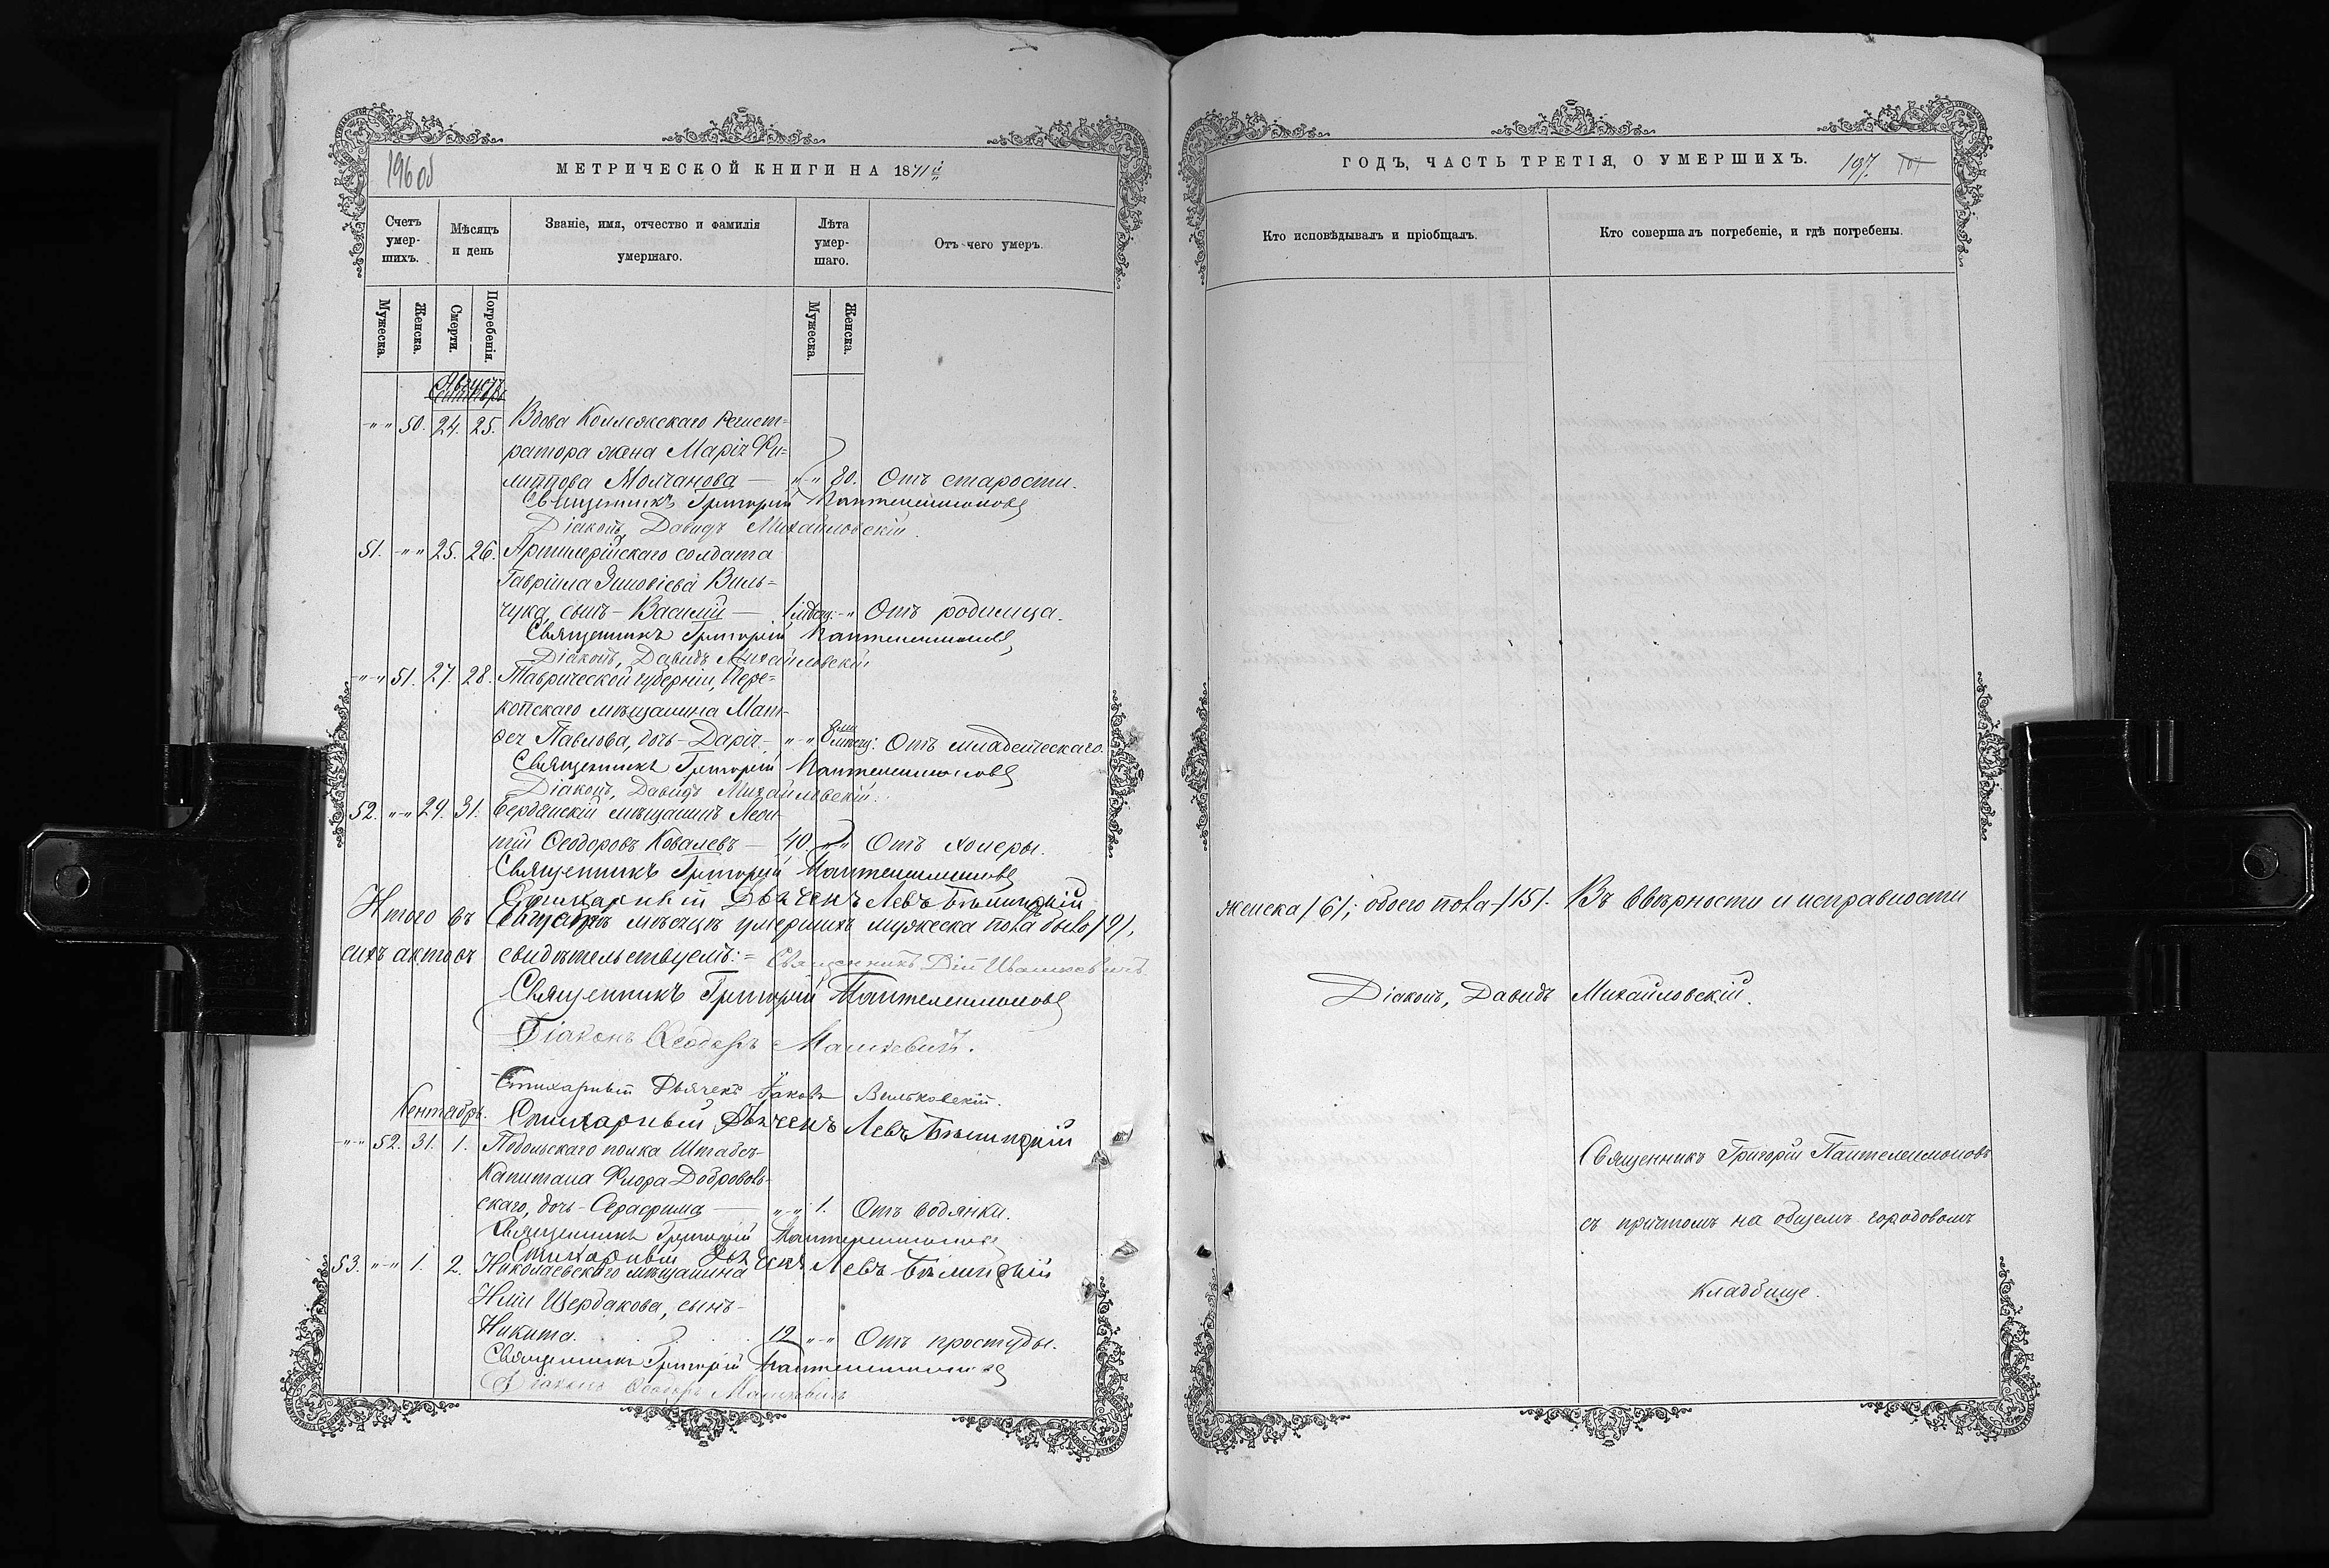 196 об
МЕТРИЧЕСКОЙ КНИГИ НА 1871й
Счетъ умершихъ.
Мѣсяцъ и день
Званіе, имя, отчество и фамилія умершаго.
Лѣта умершаго.
Отъ чего умеръ.
Мужеска.
Женска.
Смерти.
Погребенія.
Мужеска.
Женска.
Августъ
-"-" 50. 24. 25. Вдова Коллежскаго Регист=
ратора жена Марія Фи=
липпова Молчанова — "-" 80. Отъ старости.
Священникъ Григорій Пантелеимоновъ
Діаконъ, Давидъ Михайловскій.
51. -"-" 25. 26. Артилерійскаго солдата
Гавріила Виль=
чука, сынъ - Василій — Отъ родимца.
Священникъ Григорій Пантелеимоновъ
Діаконъ, Давидъ Михайловскій
-"-" 51. 27. 28. Таврической губерніи, Пере=
копскаго мѣщанина Мат-
ѳея Павлова, дочь - Дарія - "-" Отъ младенческаго.
Священникъ Григорій Пантелеимоновъ
Діаконъ, Давидъ Михайловскій.
52. "-" 29. 31. Бердянскій мѣщанинъ Леон-
тій Ѳеодоровъ Ковалевъ — 40. "-" Отъ холеры.
Священникъ Григорій Пантелеимоновъ
Стихарный Дьячекъ Левъ Бѣлицкій
Итого въ Августѣ мѣсяцѣ умершихъ мужеска пола было /9/,
сихъ актовъ свидѣтельствуемъ: = Священникъ Дій Ивашкевичъ
Священникъ Григорій Пантелеимоновъ
Діаконъ Ѳеодоръ Мацкевичъ.
Стихарный Дьячекъ Іаковъ Вельковскій.
Сентябрь. Стихарный Дьячекъ Левъ Бѣлицкій
-"-" 52. 31. 1. Подольскаго полка Штабсъ-
Капитана Флора Добровол-
скаго, дочь - Серафима — "-" 1. Отъ водянки.
Священникъ Григорій Пантелеимоновъ
Стихарный Дьячекъ Левъ Бѣлицкій
53. "-" 1. 2. Николаевскаго мѣщанина
Иліи Щербакова, сынъ -
Никита. 12 "-" Отъ простуды.
Священникъ Григорій Пантелеимоновъ
Діаконъ Ѳеодоръ Мацкевичъ
ГОДЪ, ЧАСТЬ ТРЕТІЯ, О УМЕРШИХЪ. 197.
Кто исповѣдывалъ и пріобщалъ.
Кто совершалъ погребеніе, и гдѣ погребены.
женска /6/; обоего пола /15/. Въ вѣрности и исправности
Діаконъ, Давидъ Михайловскій.
Священникъ Григорій Пантелеимоновъ
съ причтомъ на общемъ городовомъ
кладбище.